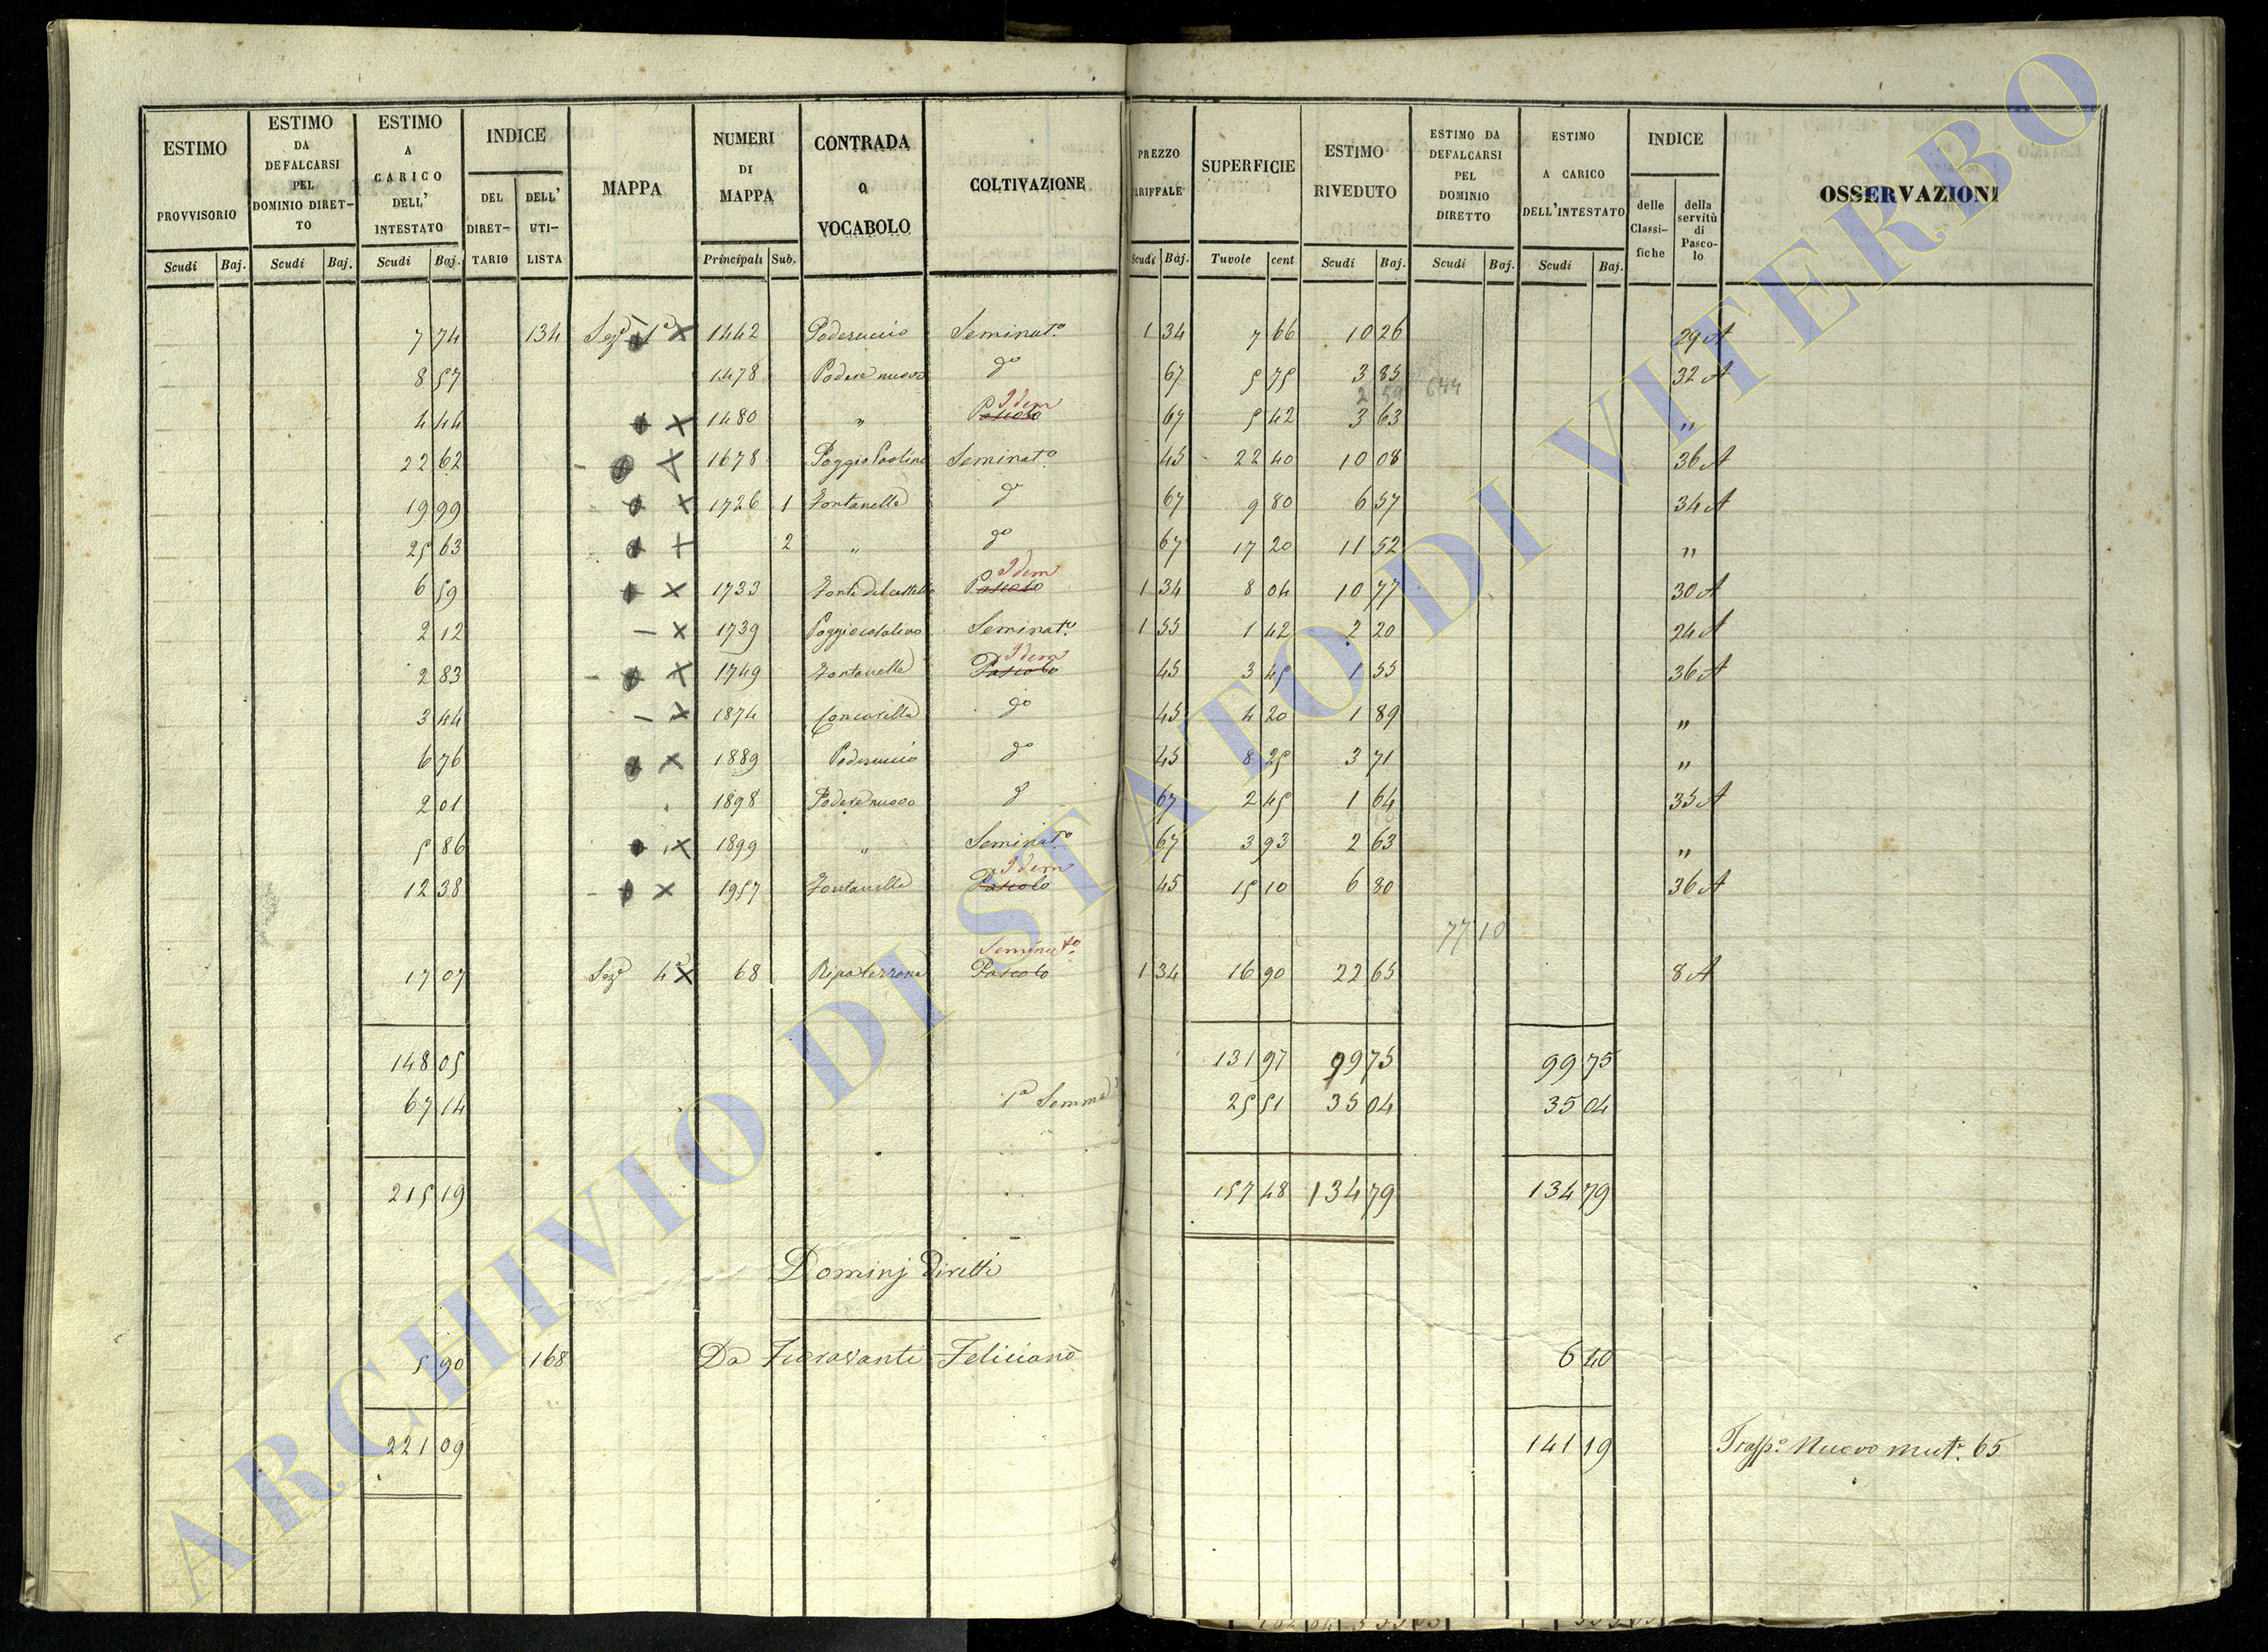 ESTIMO PROVVISORIO | ESTIMO DA DEFALCARSI PEL DOMINIO DIRET-TO | ESTIMO A CARICO DELL' INTESTATO | INDICE DEL DIRET-TARIO | DELL' UTI-LISTA | MAPPA | NUMERI DI MAPPA | CONTRADA o VOCABOLO | COLTIVAZIONE | PREZZO TARIFFALE | SUPERFICIE | ESTIMO RIVEDUTO | ESTIMO DA DEFALCARSI PEL DOMINIO DIRETTO | ESTIMO A CARICO DELL'INTESTATO | INDICE delle Classi-fiche | della servitù di Pasco-lo | OSSERVAZIONI
Scudi Baj. | Scudi Baj. | Scudi Baj. | Principali Sub. | Scudi Baj. | Tavole cent | Scudi Baj. | Scudi Baj. | Scudi Baj.
7 74 134 Sezᵉ 1ª X 1442 Poderuccio Seminatº 1 34 7 66 10 26 29 A
8 57 1478 Podere nuovo dº 67 5 75 3 85 32 A
2 59 644
4 44 X 1480 " Pascolo Idem 67 5 42 3 63 "
22 62 X 1678 Poggio Paolino Seminatº 45 22 40 10 08 36 A
19 99 X 1726 1 Fontanella dº 67 9 80 6 57 34 A
25 63 X 2 " dº 67 17 20 11 52 "
6 59 X 1733 Fonte del castello Pascolo Idem 1 34 8 04 10 77 30 A
2 12 X 1739 Seminatº 1 55 1 42 2 20 24 A
2 83 X 1749 Fontanella Pascolo Idem 45 3 45 1 55 36 A
3 44 X 1874 Concarella dº 45 4 20 1 89 "
6 76 X 1889 Poderuccio dº 45 8 25 3 71 "
2 01 1898 Podere nuovo dº 67 2 45 1 64 35 A
5 86 X 1899 " Seminatº 67 3 93 2 63 "
12 38 X 1957 Fontanella Pascolo Idem 45 15 10 6 80 36 A
77 10
17 07 Sezᵉ 4ª X 68 Ripa terrona Pascolo Seminatº 1 34 16 90 22 65 8 A
148 05 131 97 99 75 99 75
67 14 1ª Somma 25 51 35 04 35 04
215 19 157 48 134 79 134 79
Dominj diretti
5 90 168 Da Fioravanti Feliciano 6 40
221 09 141 19 Traspº Nuovo mutº 65
ARCHIVIO DI STATO DI VITERBO